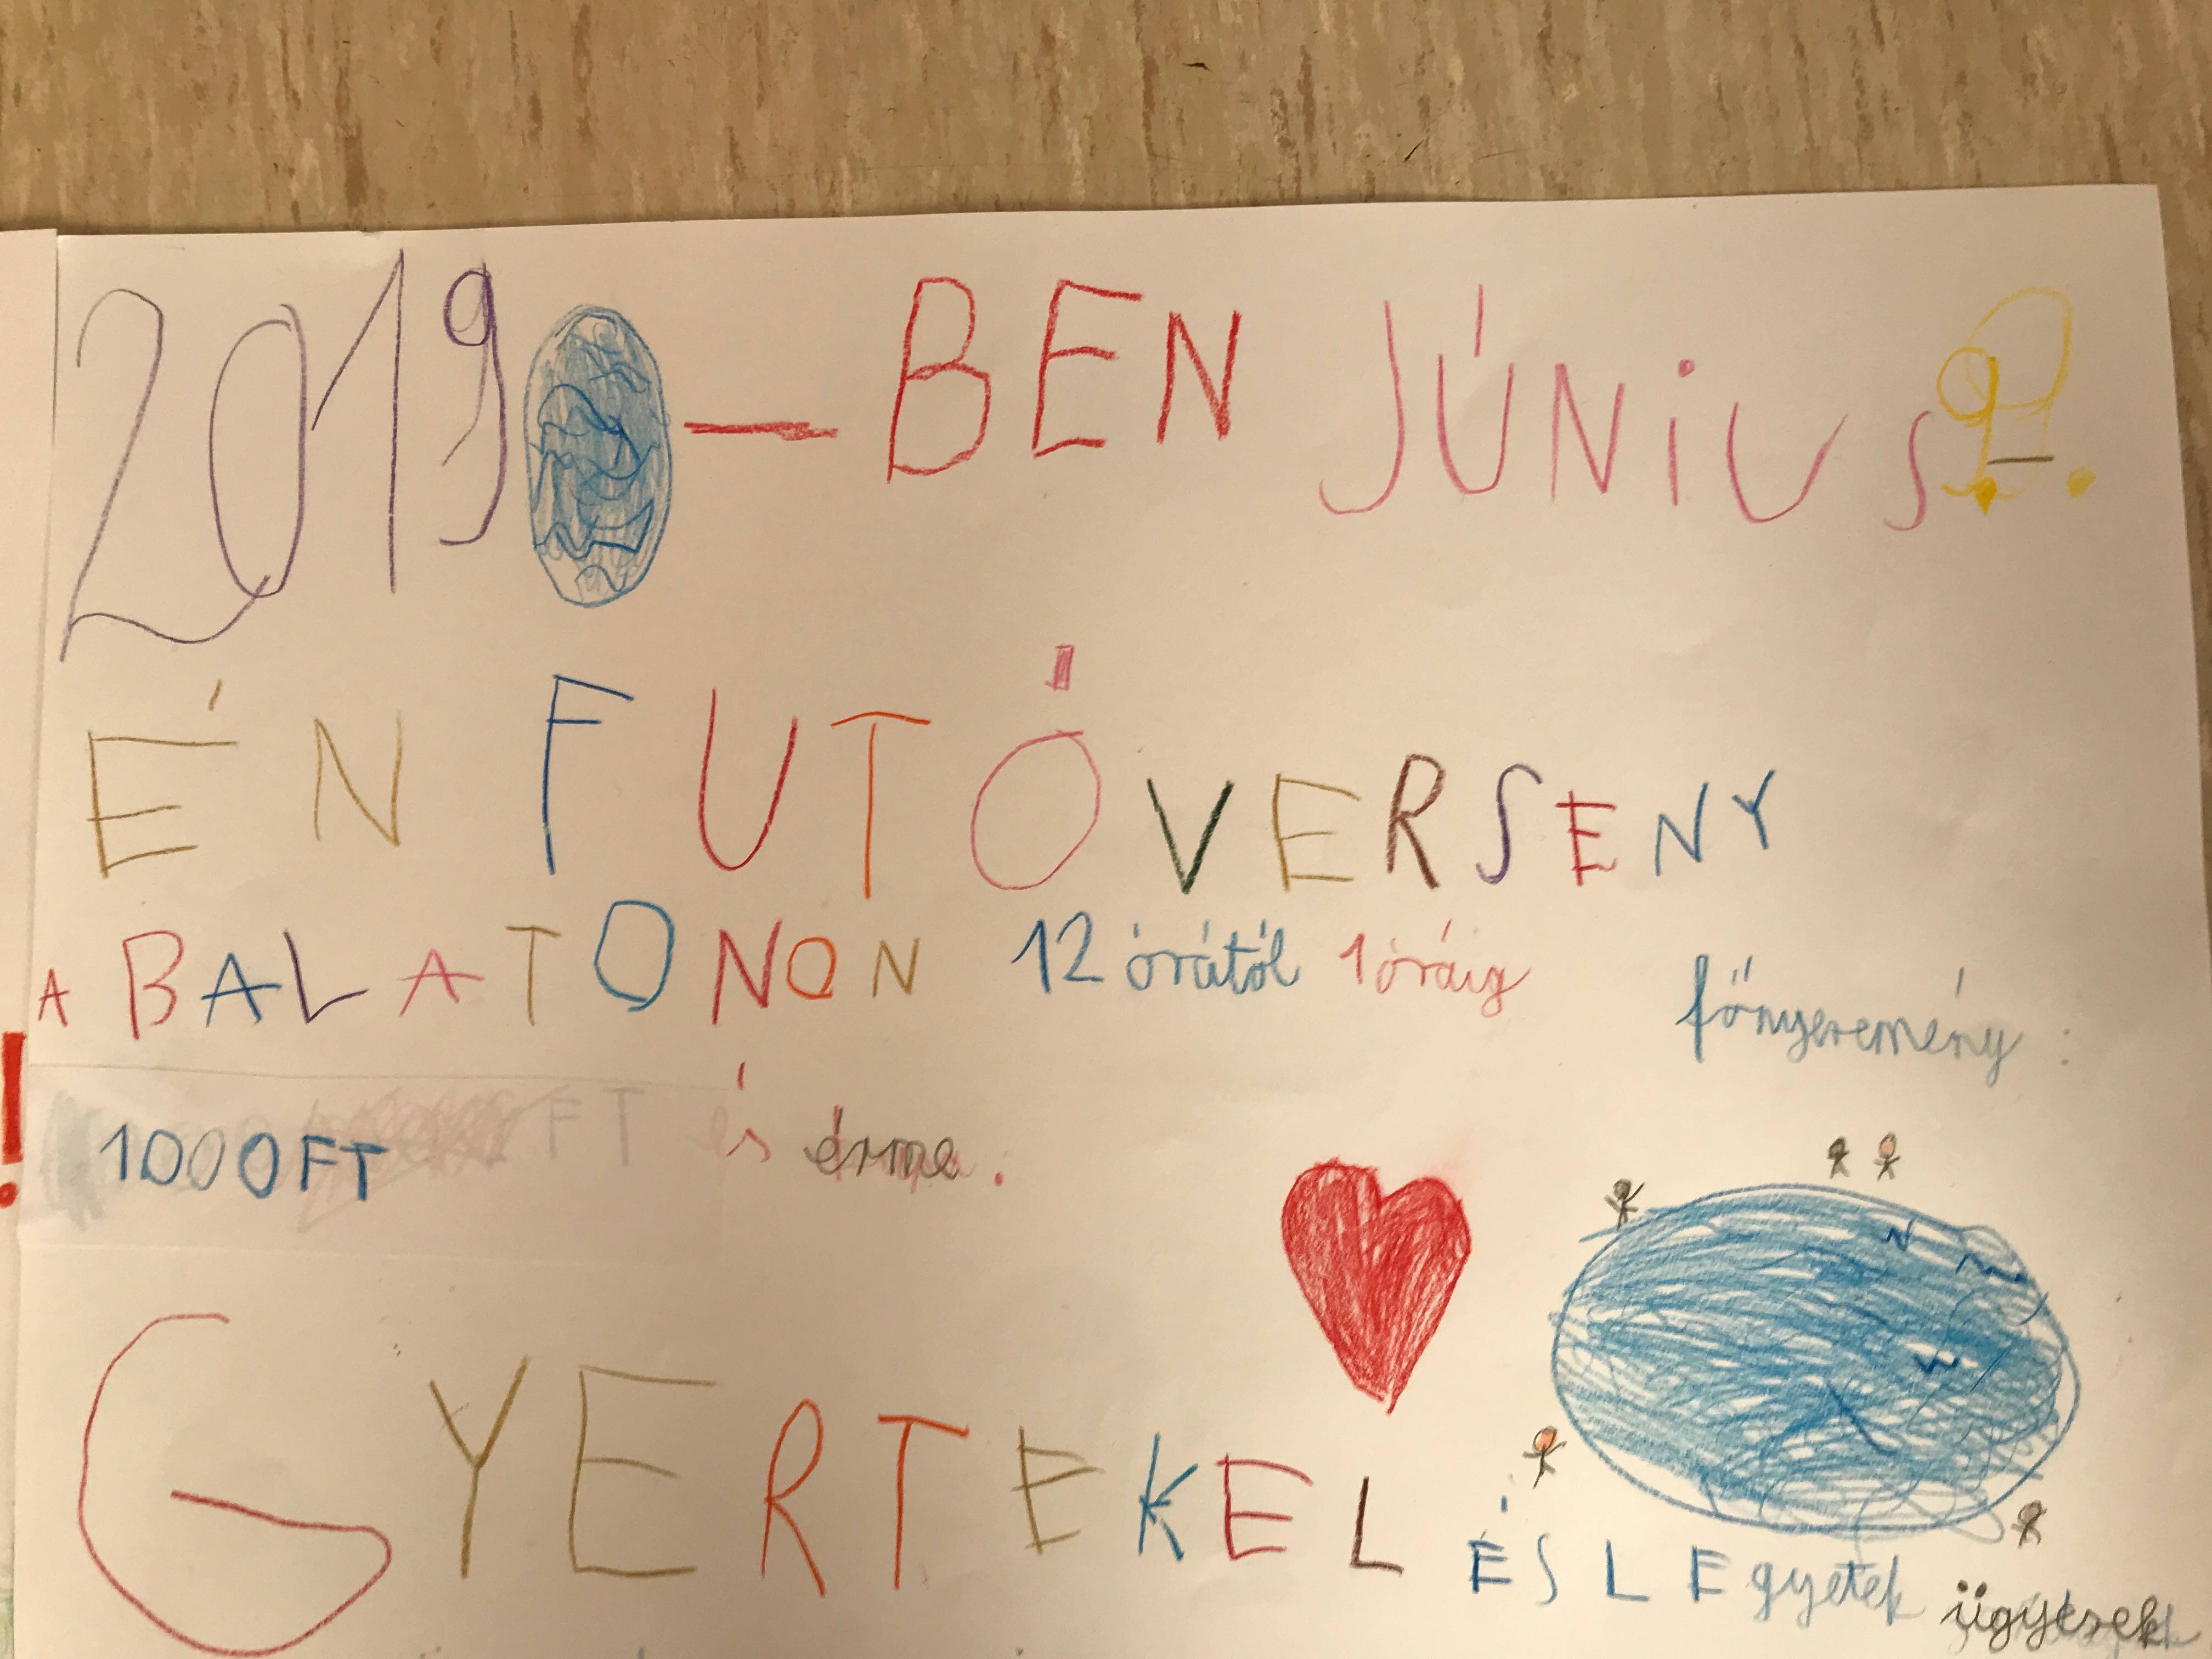 2019 - BEN JÚNiUS
ÉN FUTÓVERSENY
A BALATONON 12 órától 1 óráig főnyeremény:
1000FT FT és érme.
GYERTEKEL ÉS LEgyetek ügyesek
!